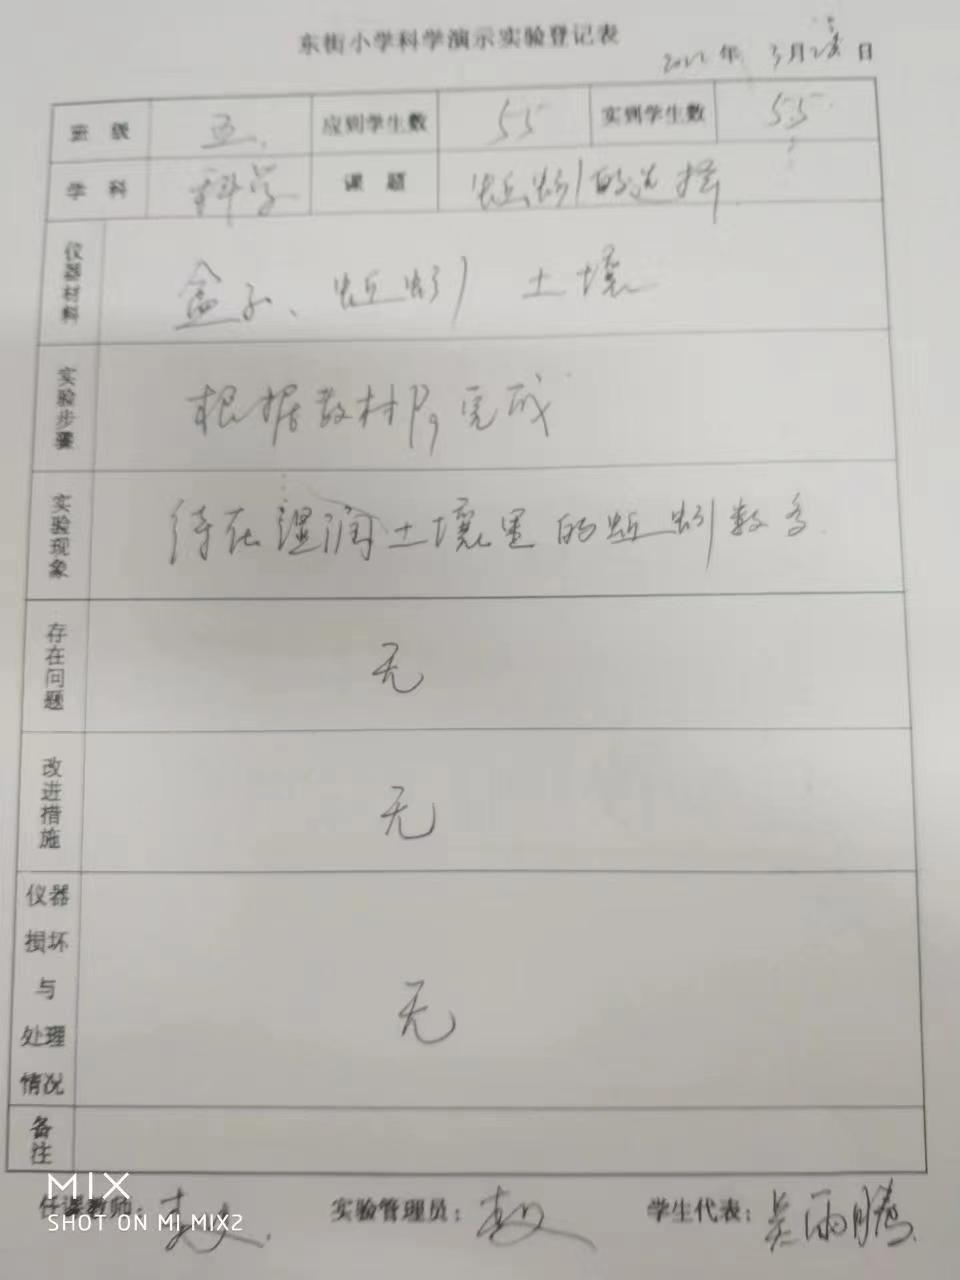 东街小学科学演示实验登记表
2022年 3月 日
班 级 五. 应到学生数 55 实到学生数 55
学 科 科学 课 题 蚯蚓的选择
仪器材料 盒子、蚯蚓 土壤
实验步骤 根据教材P9完成
实验现象 待在湿润土壤里的蚯蚓数多.
存在问题 无
改进措施 无
仪器损坏与处理情况 无
备注
任课教师: 实验管理员: 学生代表: 吴雨腾
MIX
SHOT ON MI MIX2